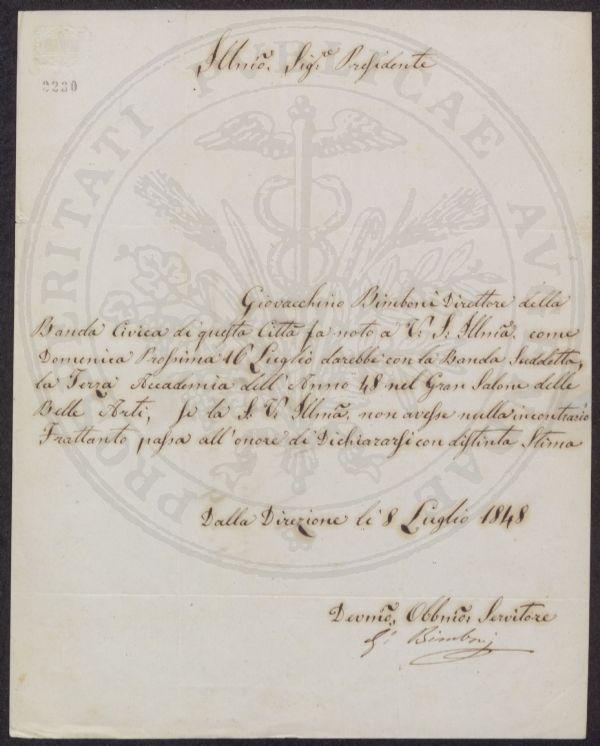 2230
Illmo. Sigre. Presidente
Giovacchino Bimboni Direttore della
Banda Civica di questa Città fa noto a V: S: Illma. come
Domenica Prossima 16 Luglio darebbe con la Banda Suddetta,
la Terza Accademia dell'Anno 48 nel Gran Salone delle
Belle Arti, Se la S: V: Illma. non avesse nulla in contrario
Frattanto passa all'onore di Dichiararsi con distinta Stima
Dalla Direzione li 8 Luglio 1848
Devmo. Obbmo. Servitore
G: Bimboni
PROSPERITATI PUBLICAE AUGENDAE